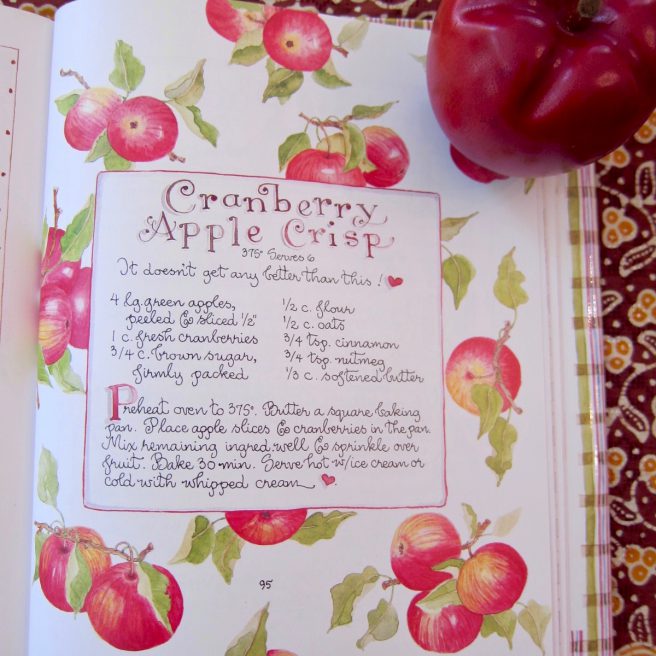 Cranberry
& Apple Crisp
375° Serves 6
It doesn't get any better than this!
4 lg. green apples,
peeled & sliced 1/2"
1 c. fresh cranberries
3/4 c. brown sugar,
firmly packed
1/2 c. flour
1/2 c. oats
3/4 tsp. cinnamon
3/4 tsp. nutmeg
1/3 c. softened butter
Preheat oven to 375°. Butter a square baking
pan. Place apple slices & cranberries in the pan.
Mix remaining ingred. well & sprinkle over
fruit. Bake 30 min. Serve hot w/ice cream or
cold with whipped cream
95